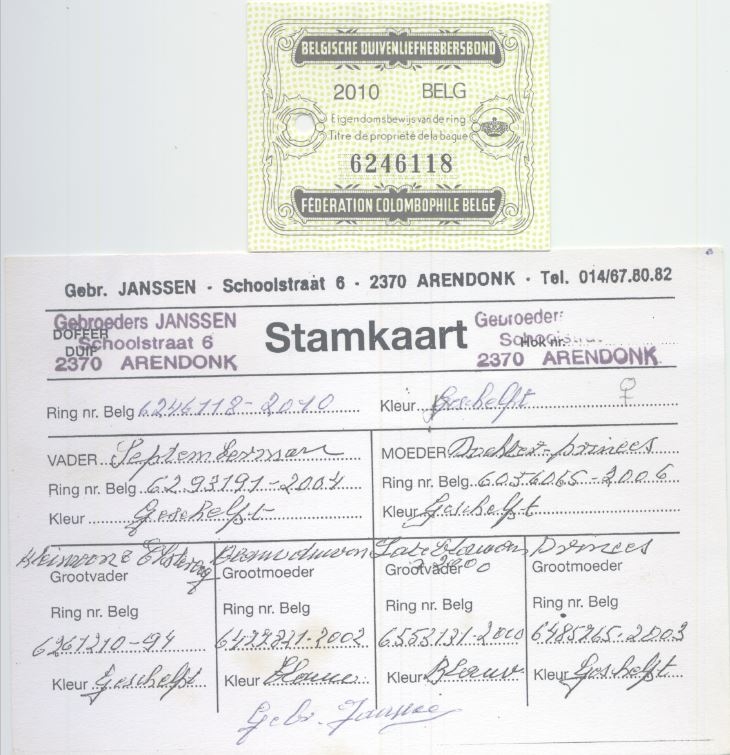 BELGISCHE DUIVENLIEFHEBBERSBOND
2010 BELG
Eigendomsbewijs van de ring
Titre de propriété de la bague
6246118
FÉDÉRATION COLOMBOPHILE BELGE
Gebr. JANSSEN - Schoolstraat 6 - 2370 ARENDONK - Tel. 014/67.80.82
Gebroeders JANSSEN
Schoolstraat 6
2370 ARENDONK
DOFFER
DUIF
Stamkaart
Gebroeders
Hok nr.
2370 ARENDONK
Ring nr. Belg 6246118-2010 Kleur Geschelft ♀
VADER Septemberman
Ring nr. Belg 6293191-2004
Kleur Geschelft
MOEDER Dochter princes
Ring nr. Belg 6056065-2006
Kleur Geschelft
Grootvader
Ring nr. Belg
6261210-94
Kleur Geschelft
Grootmoeder
Ring nr. Belg
2002
Kleur Blauw
Late blauwen
Grootvader 2000
Ring nr. Belg
6553131-2000
Kleur Blauw
Princes
Grootmoeder
Ring nr. Belg
6485765-2003
Kleur Geschelft
Gebr. Janssen